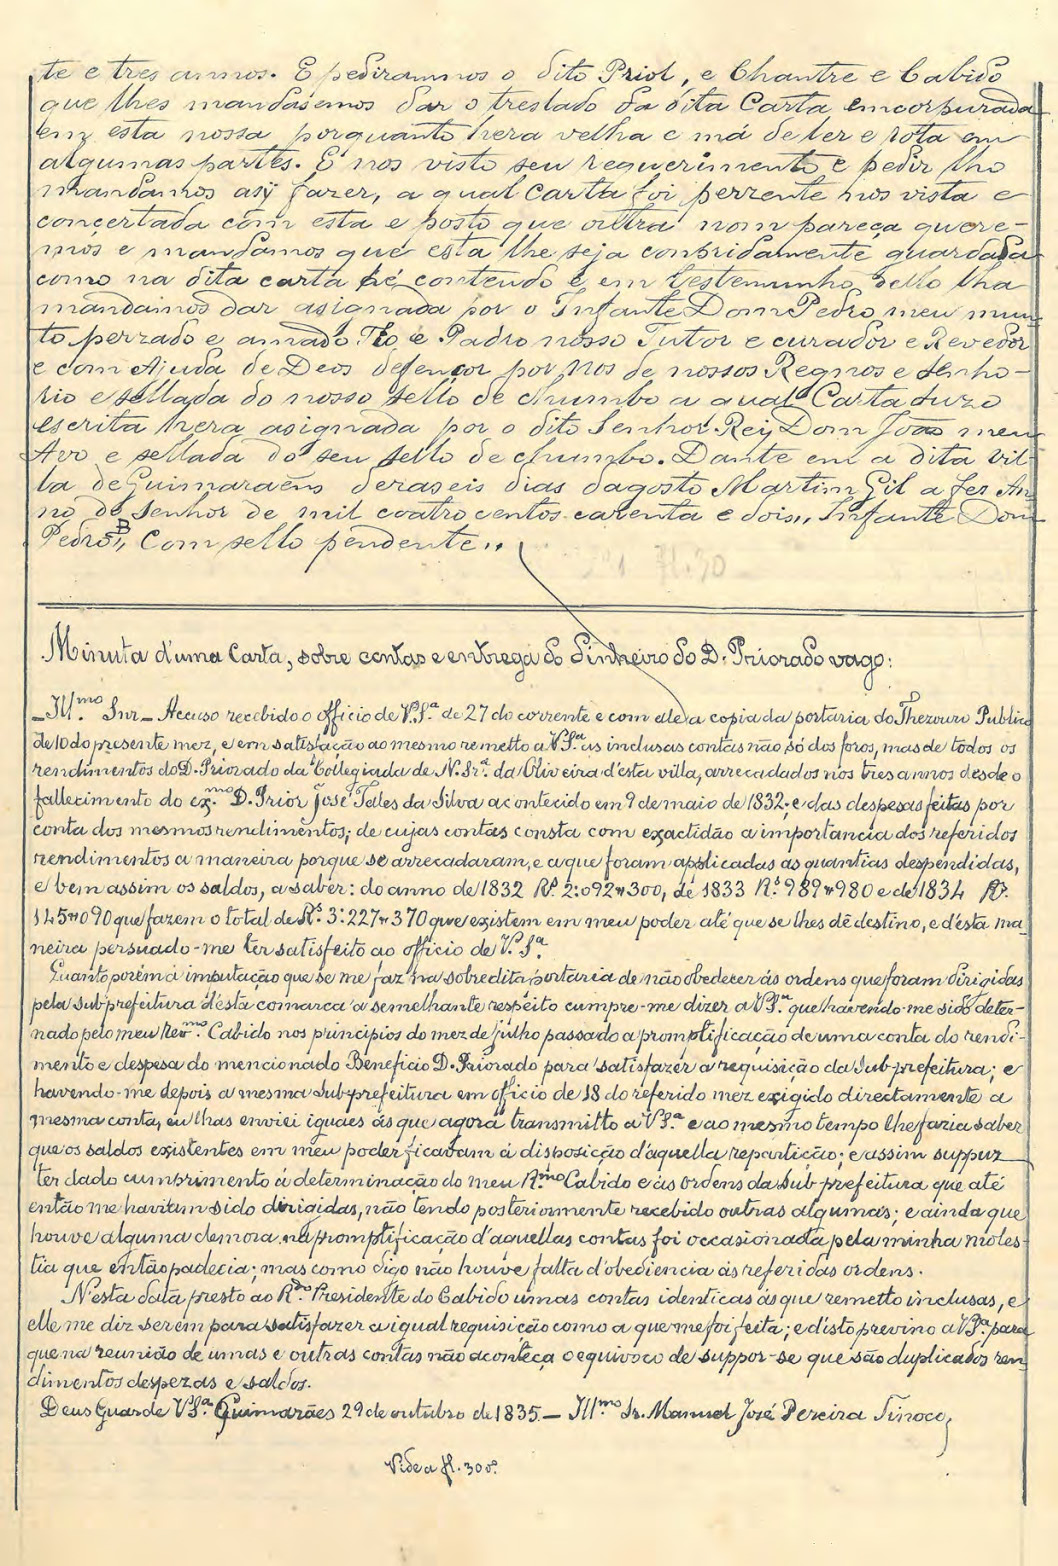 te e tres annos. E pediramnos o dito Priol, e Chantre e Cabido
que lhes mandasemos dar o treslado da dita Carta emcorpurada
em esta nossa porquanto hera velha e má de ler e rota em
algumas partes. E nos visto seu requerimento e pedir lho
mandamos asÿ fazer, a qual carta foi perrente nos vista e
concertada com esta e posto que outra nom pareça quere-
mos e mandamos que esta lhe seja conbridamente guardada
como na dita carta hé contendo e em testemunho dello lha
mandamos dar asignada por o Infante Dom Pedro meu mui-
to perzado e amado Tio e Padro nosso Tutor e curador e Revedor
e com Ajuda de Deos defençor por nos de nossos Regnos e Senho-
rio e sellada do nosso sello de chumbo a qual Carta suzo
escrita hera asignada por o dito Senhor Rey Dom João meu
Avo e sellada do seu sello de chumbo. Dante em a dita Vil-
la de Guimaraéns deraseis dias dagosto Martim Gil a fez An-
no do Senhor de mil coatro centos carenta e dois,, Infante Dom
Pedro,, Com sello pendente,,
Minuta d'uma Carta, sobre contas e entrega do dinheiro do D. Priorado vago:
_Ill.mo Snr_ Accuso recebido o officio de V.S.ª de 27 do corrente e com elle a copia da portaria do Thezouro Publico
de 10 do presente mez, e em satisfação ao mesmo remetto a V.S.ª as inclusas contas não só dos foros, mas de todos os
rendimentos do D. Priorado da Collegiada de N. Sr.ª da Oliveira d'esta villa, arrecadados nos tres annos desde o
fallecimento do ex.mo D. Prior José Teles da Silva acontecido em 9 de maio de 1832; e das despesas feitas por
conta dos mesmos rendimentos; de cujas contas consta com exactidão a importancia dos referidos
rendimentos a maneira porque se arrecadaram, e a que foram applicadas as quantias despendidas,
e bem assim os saldos, a saber: do anno de 1832 R.s 2:092#300, de 1833 R.s 989#980 e de 1834 R.s
145#090 que fazem o total de R.s 3:227#370 que existem em meu poder até que se lhes dê destino, e d'esta ma-
neira persuado-me ter satisfeito ao officio de V.S.ª
Quanto porém á imputação que se me faz na sobredita portaria de não obedecer ás ordens que foram dirigidas
pela subprefeitura d'esta comarca a semelhante respeito cumpre-me dizer a V.S.ª que havendo-me sido deter-
nado pelo meu Rev.mo Cabido nos principios do mez de julho passado a promptificação de uma conta do rendi-
mento e despesa do mencionado Beneficio D. Priorado para satisfazer a requisição da Subprefeitura; e
havendo-me depois a mesma Subprefeitura em officio de 18 do referido mez exigido directamente a
mesma conta, eu lhas enviei iguaes ás que agora transmitto a V.S.ª e ao mesmo tempo lhe fazia saber
que os saldos existentes em meu poder ficavam á disposição d'aquella repartição; e assim suppuz
ter dado cumprimento á determinação do meu R.mo Cabido e ás ordens da Subprefeitura que até
então me haviam sido dirigidas, não tendo posteriormente recebido outras algumas; e ainda que
houve alguma demora na promptificação d'aquellas contas foi occasionada pela minha moles-
tia que então padecia; mas como digo não houve falta d'obediencia ás referidas ordens.
N'esta data presto ao R.do Presidente do Cabido umas contas identicas ás que remetto inclusas, e
elle me diz serem para satisfazer a igual requisição como a que me foi feita; e disto previno a V.S.ª para
que na reunião de umas e outras contas não aconteça o equivoco de suppor-se que são duplicados ren-
dimentos despezas e saldos.
Deus Guarde V.S.ª Guimarães 29 de outubro de 1835_ Ill.mo Sr. Manuel José Pereira Tinoco,
Vide a fl. 30 vº.